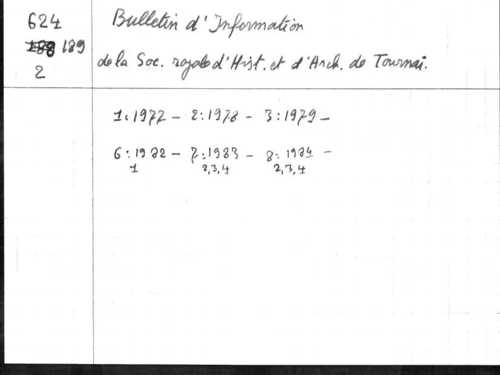 624
189
2
Bulletin d'Information
de la Soc. royale d'Hist. et d'Arch. de Tournai.
1:1977 - 2:1978 - 3:1979 -
6:1982 - 7:1983 - 8:1984 -
1 2,3,4 2,3,4